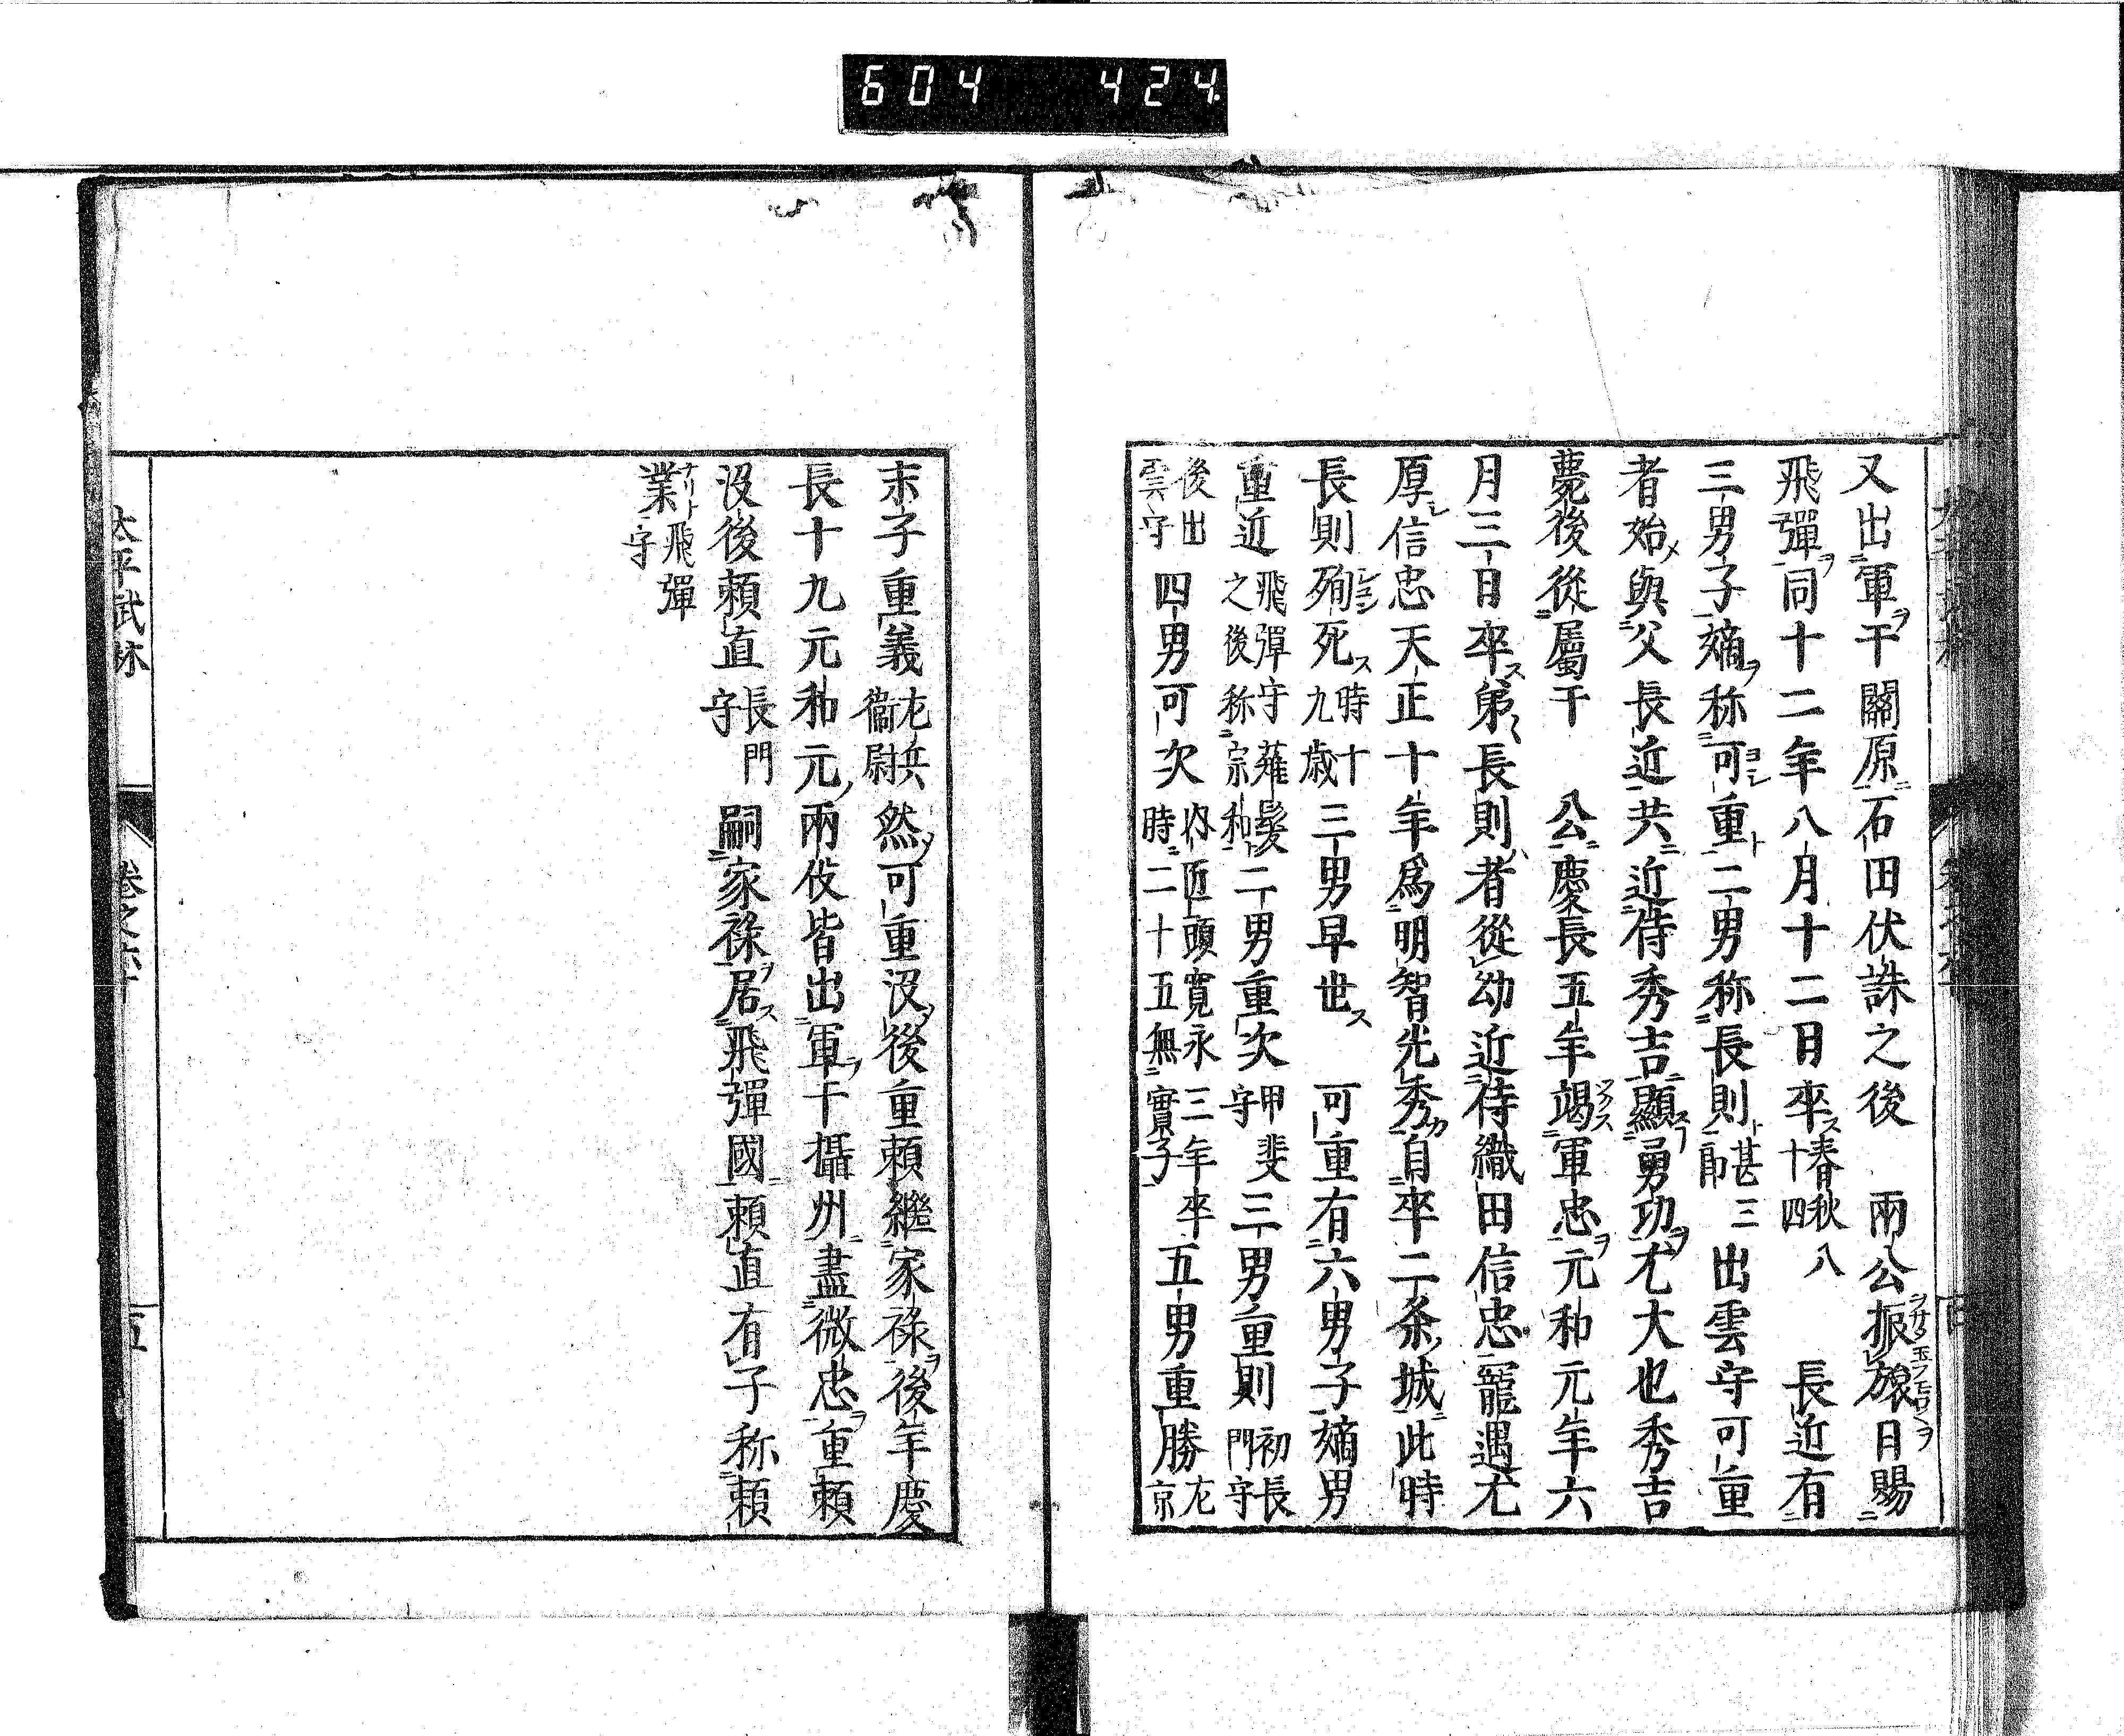 604 424
又出軍于關原石田伏誅之後　兩公振旅日賜
飛彈同十二年八月十二日卒春秋八十四　長近有
三男子嫡称可重二男称長則甚三郎出雲守可重
者始與父長近共近侍秀吉顯勇功尤大也秀吉
薨後從屬于　公慶長五年竭軍忠元和元年六
月三日卒弟長則者從幼近侍織田信忠寵遇尤
厚信忠天正十年爲明智光秀自卒二条城此時
長則殉死時十九歳三男早世　可重有六男子嫡男
重近飛彈守薙髮之後称宗和二男重次甲斐守三男重則初長門守
後出雲守四男可次内匠頭寛永三年卒時二十五無實子五男重勝左京
末子重義左兵衞尉然可重沒後重頼繼家祿後年慶
長十九元和元兩伇皆出軍于攝州盡微忠重頼
沒後頼直長門守嗣家祿居飛彈國頼直有子称頼
業飛彈守
太平武林　卷之六　五